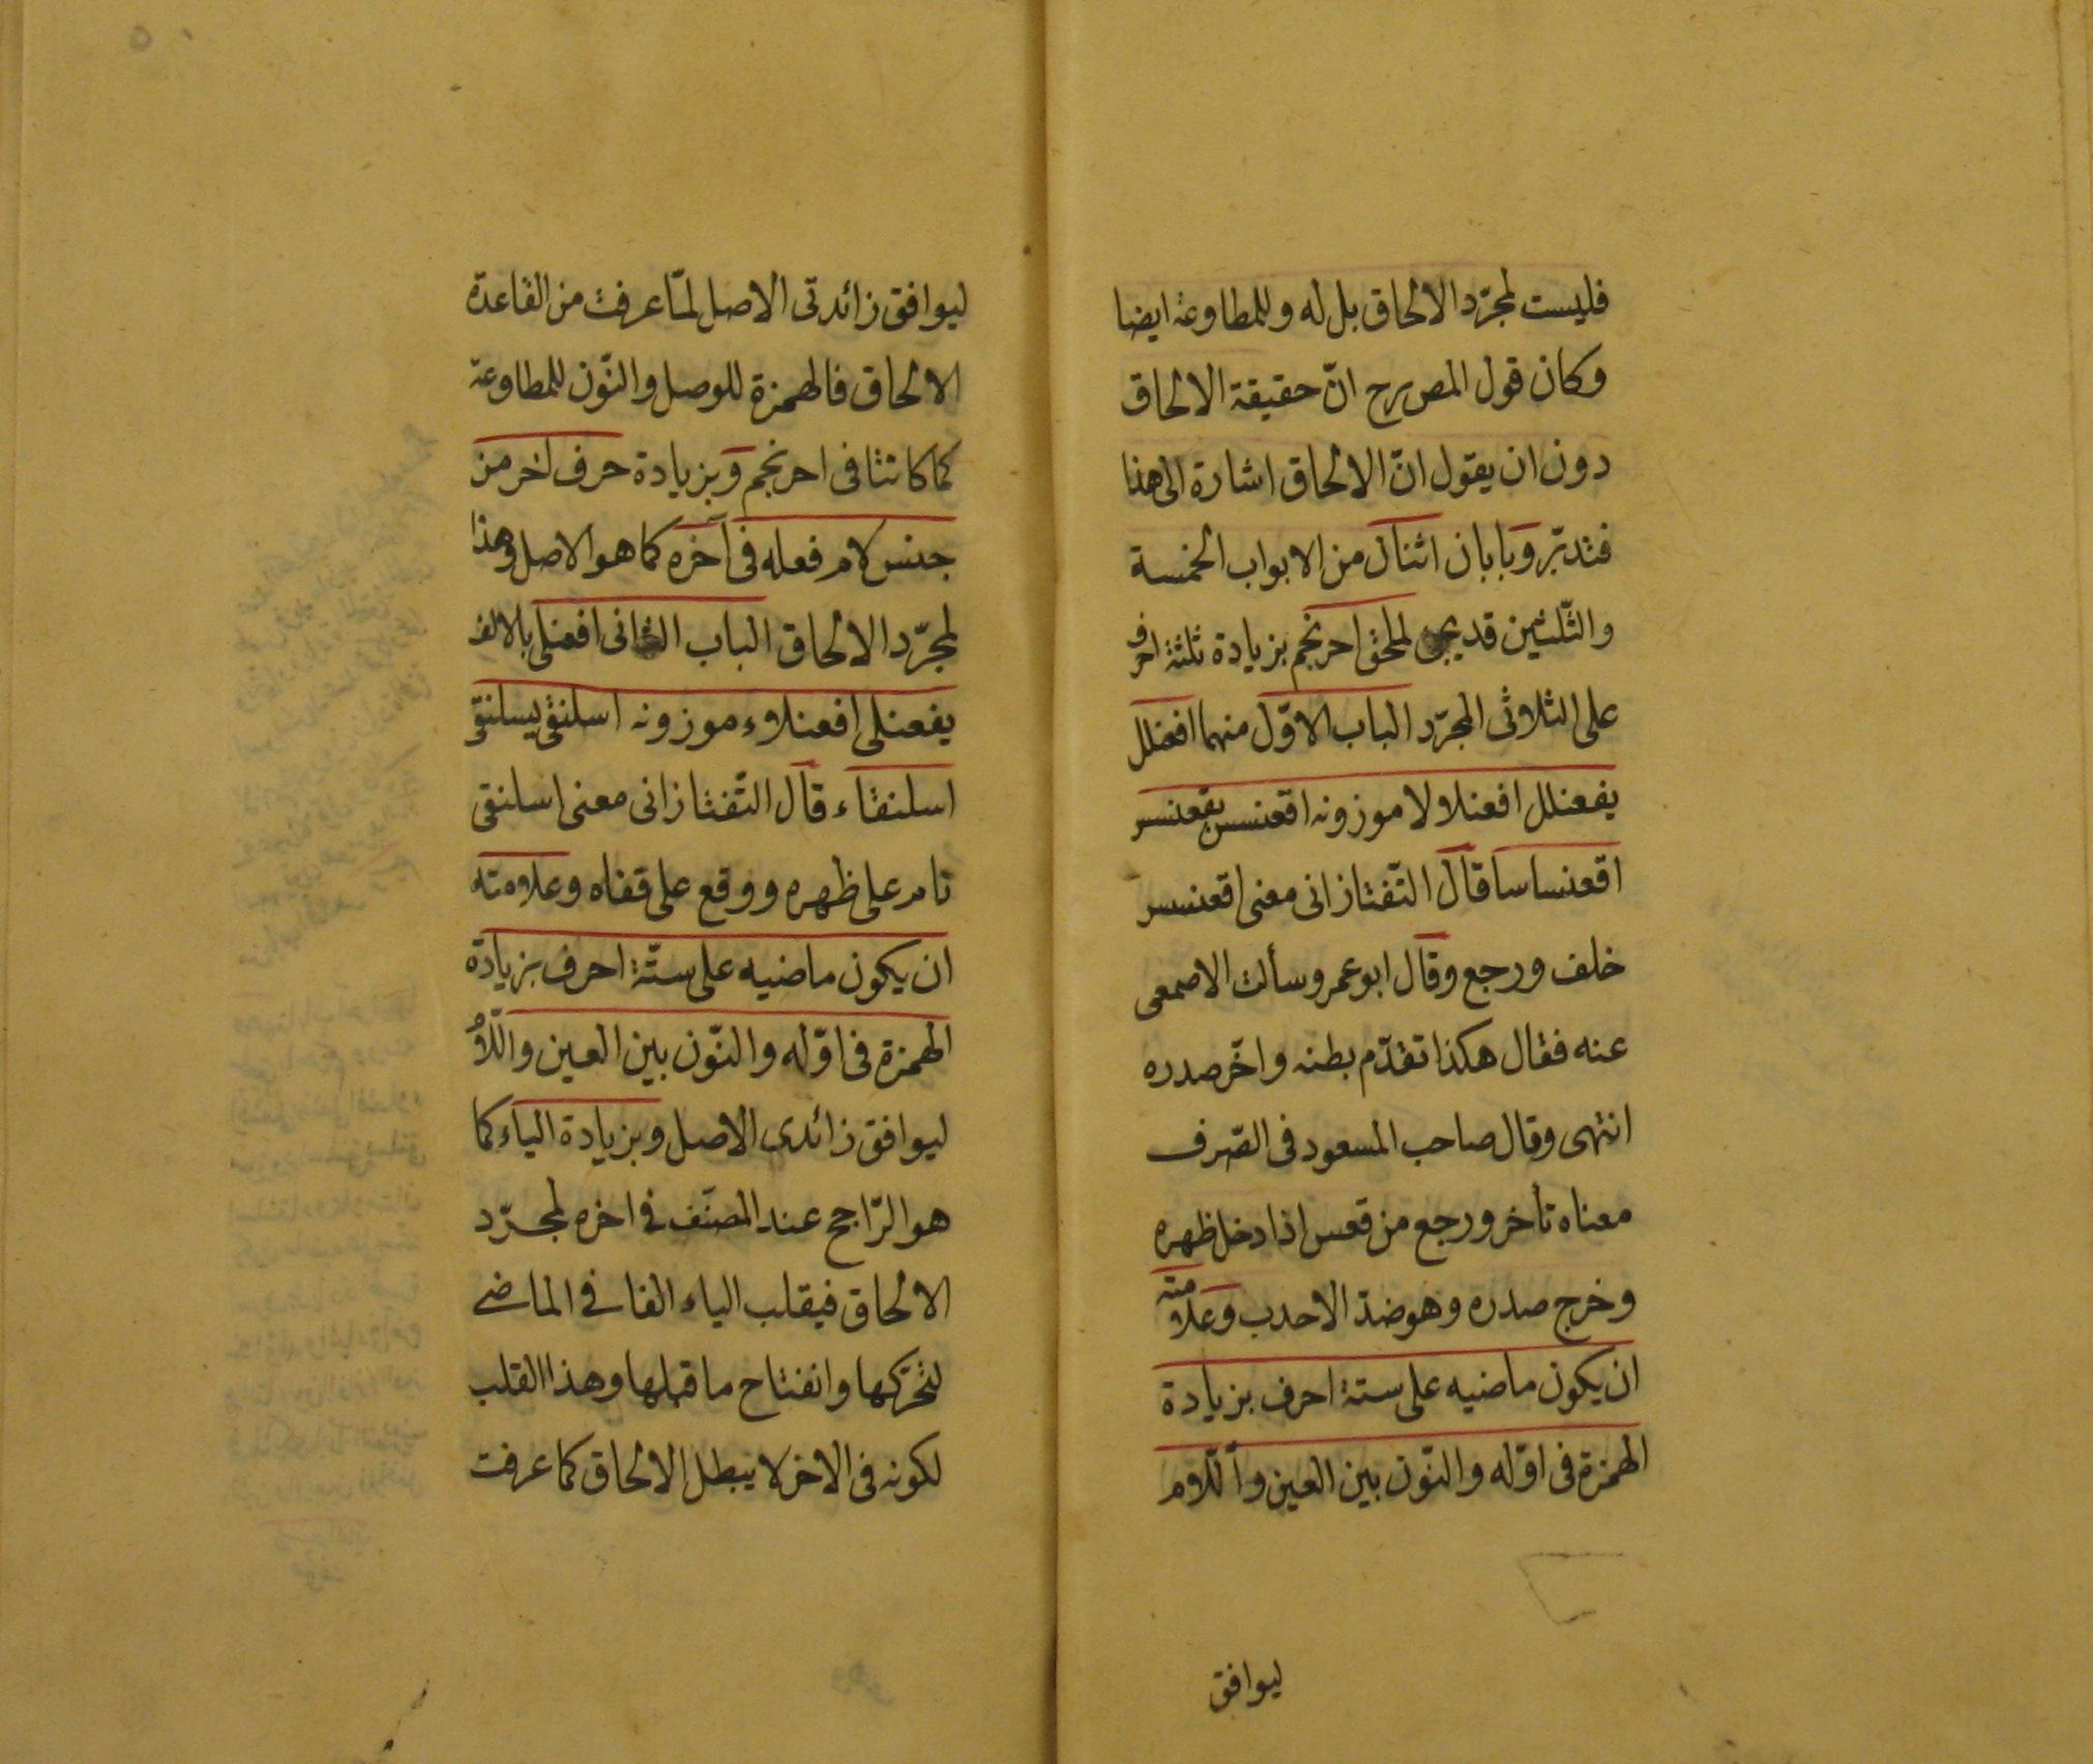 فليست لمجرّد الالحاق بل له وللمطاوعة ايضا
وكان قول المص يرجح انّ حقيقة الالحاق
دون ان يقول انّ الالحاق اشارة الى هذا
فتدبّر وبابان اثنان من الابواب الخمسة
والثّلثين لملحق احرنجم بزيادة ثلثة احرف
على الثلاثى المجرّد الباب الاوّل منهما افعنلل
يفعنلل افعنلالا موزونه اقعنسس يقعنسس
اقعنساسا قال التّفتازانى معنى اقعنسس
خلف ورجع وقال ابو عمرو سألت الاصمعى
عنه فقال هكذا تقدّم بطنه واخّر صدره
انتهى وقال صاحب المسعود فى الصّرف
معناه تأخر ورجع من قعس اذا دخل ظهره
وخرج صدره وهو ضدّ الاحدب وعلامته
ان يكون ماضيه على ستة احرف بزيادة
الهمزة فى اوّله والنّون بين العين واللّام
ليوافق
ليوافق زائدتى الاصل لمّا عرفت من القاعدة
الالحاق فالهمزة للوصل والنّون للمطاوعة
كما كانتا فى احرنجم وبزيادة حرف آخر من
جنس لام فعله فى آخره كما هو الاصل وهذا
لمجرّد الالحاق الباب الثانى افعنلى بالالف
يفعنلى افعنلاء موزونه اسلنقى يسلنقى
اسلنقاء قال التّفتازانى معنى اسلنقى
نام على ظهره ووقع على قفاه وعلامته
ان يكون ماضيه على ستّة احرف بزيادة
الهمزة فى اوّله والنّون بين العين واللّام
ليوافق زائدى الاصل وبزيادة الياء كما
هو الرّاجح عند المصنّف فى اخره لمجرّد
الالحاق فيقلب الياء الفا فى الماضى
لتحرّكها وانفتاح ما قبلها وهذا القلب
لكونه فى الاخر لا يبطل الالحاق كما عرفت